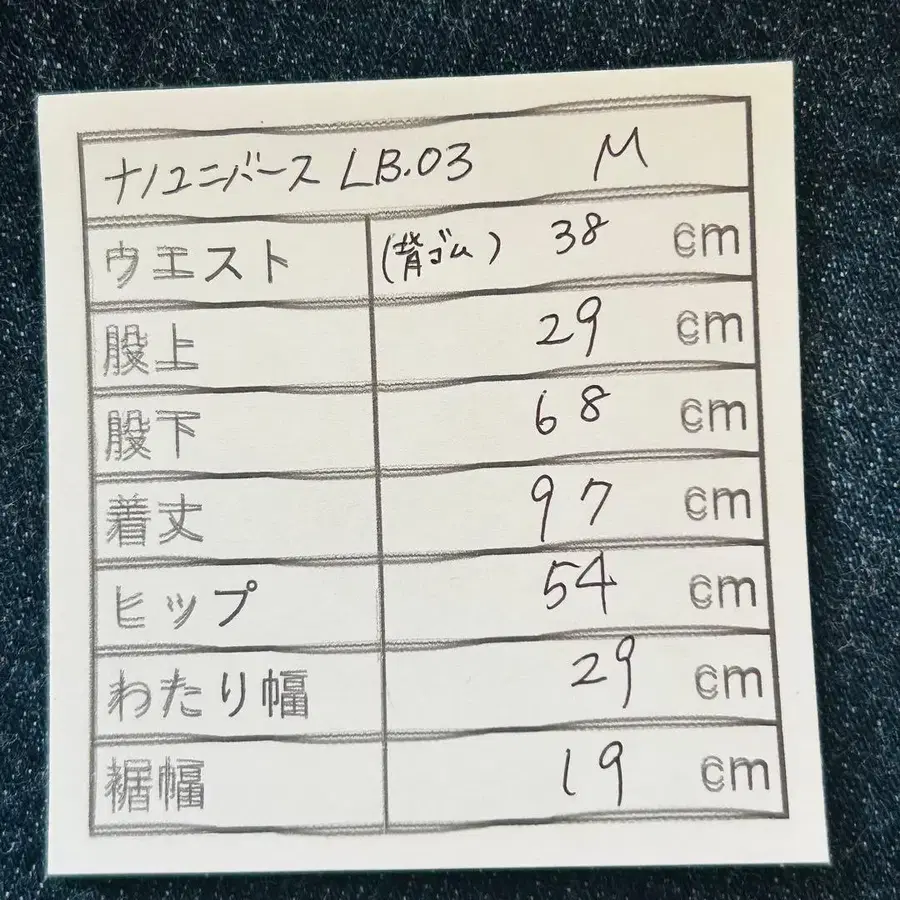 ナノユニバース LB.03 M
ウエスト (背ゴム) 38 cm
股上 29 cm
股下 68 cm
着丈 97 cm
ヒップ 54 cm
わたり幅 29 cm
裾幅 19 cm